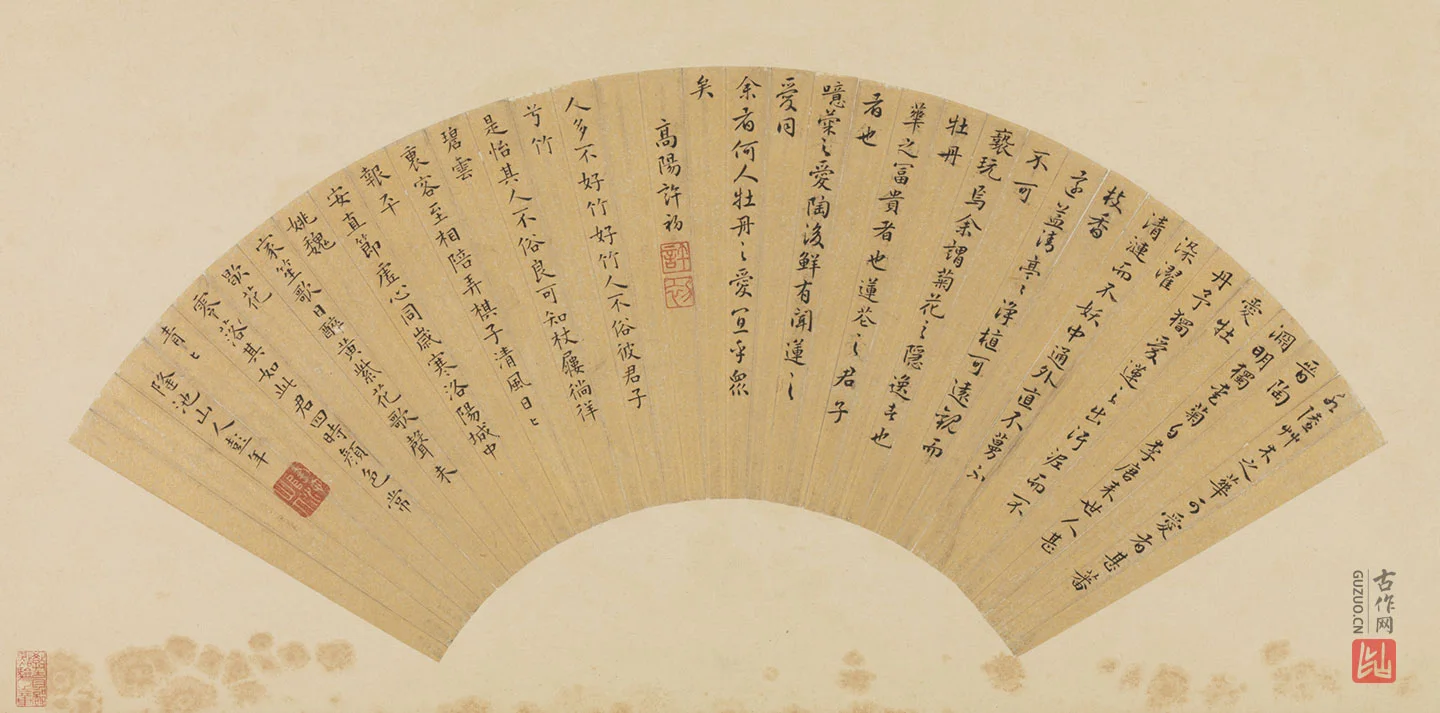 水陸艸木之華可愛者甚蕃
晉陶
淵明獨愛菊自李唐来世人甚
愛牡
丹予獨愛蓮之出淤泥而不
染濯
清漣而不妖中通外直不蔓不
枝香
遠益清亭〻淨植可遠観而
不可
褻玩焉余謂菊花之隱逸者也
牡丹
華之冨貴者也蓮花之君子
者也
噫菊之愛陶後鮮有聞蓮之
愛同
余者何人牡丹之愛宜乎眾
矣
高陽許初
許初
人多不好竹好竹人不俗彼君子
兮竹
是怡其人不俗良可知杖屨徜徉
碧雲
裏客至相陪弄棋子清風日〻
報平
安直節虛心同歲寒洛陽城中
姚魏
家笙歌日醉黃紫花歌聲未
歇花
零落其如此君四時顏色常
青〻
隆池山人彭年
古作网
GUZUO.CN